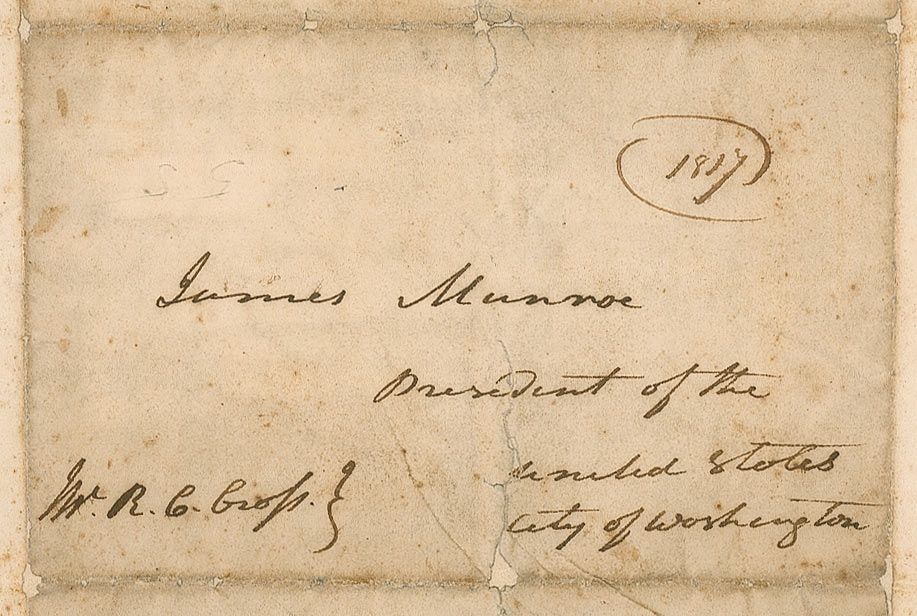 1817
James Munroe
President of the
united States
Mr. R. C. Cross. }
City of Washington